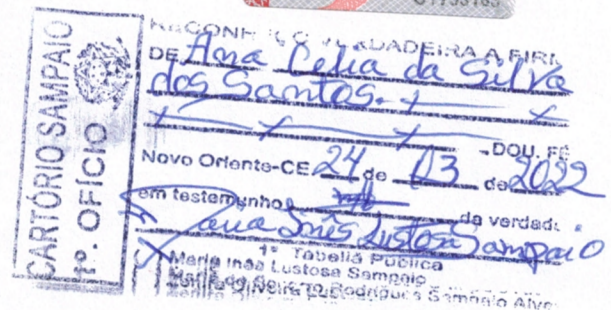 CARTÓRIO SAMPAIO
1º. OFÍCIO
RECONHEÇO VERDADEIRA A FIRM
DE Ana Celia da Silva
dos Santos.
DOU. FÉ
Novo Oriente-CE 24 de 03 de 2022
em testemunho da verdade
Maria Inês Lustosa Sampaio
1ª Tabeliã Pública
Maria Inês Lustosa Sampaio
Rodrigues Sampaio Alve